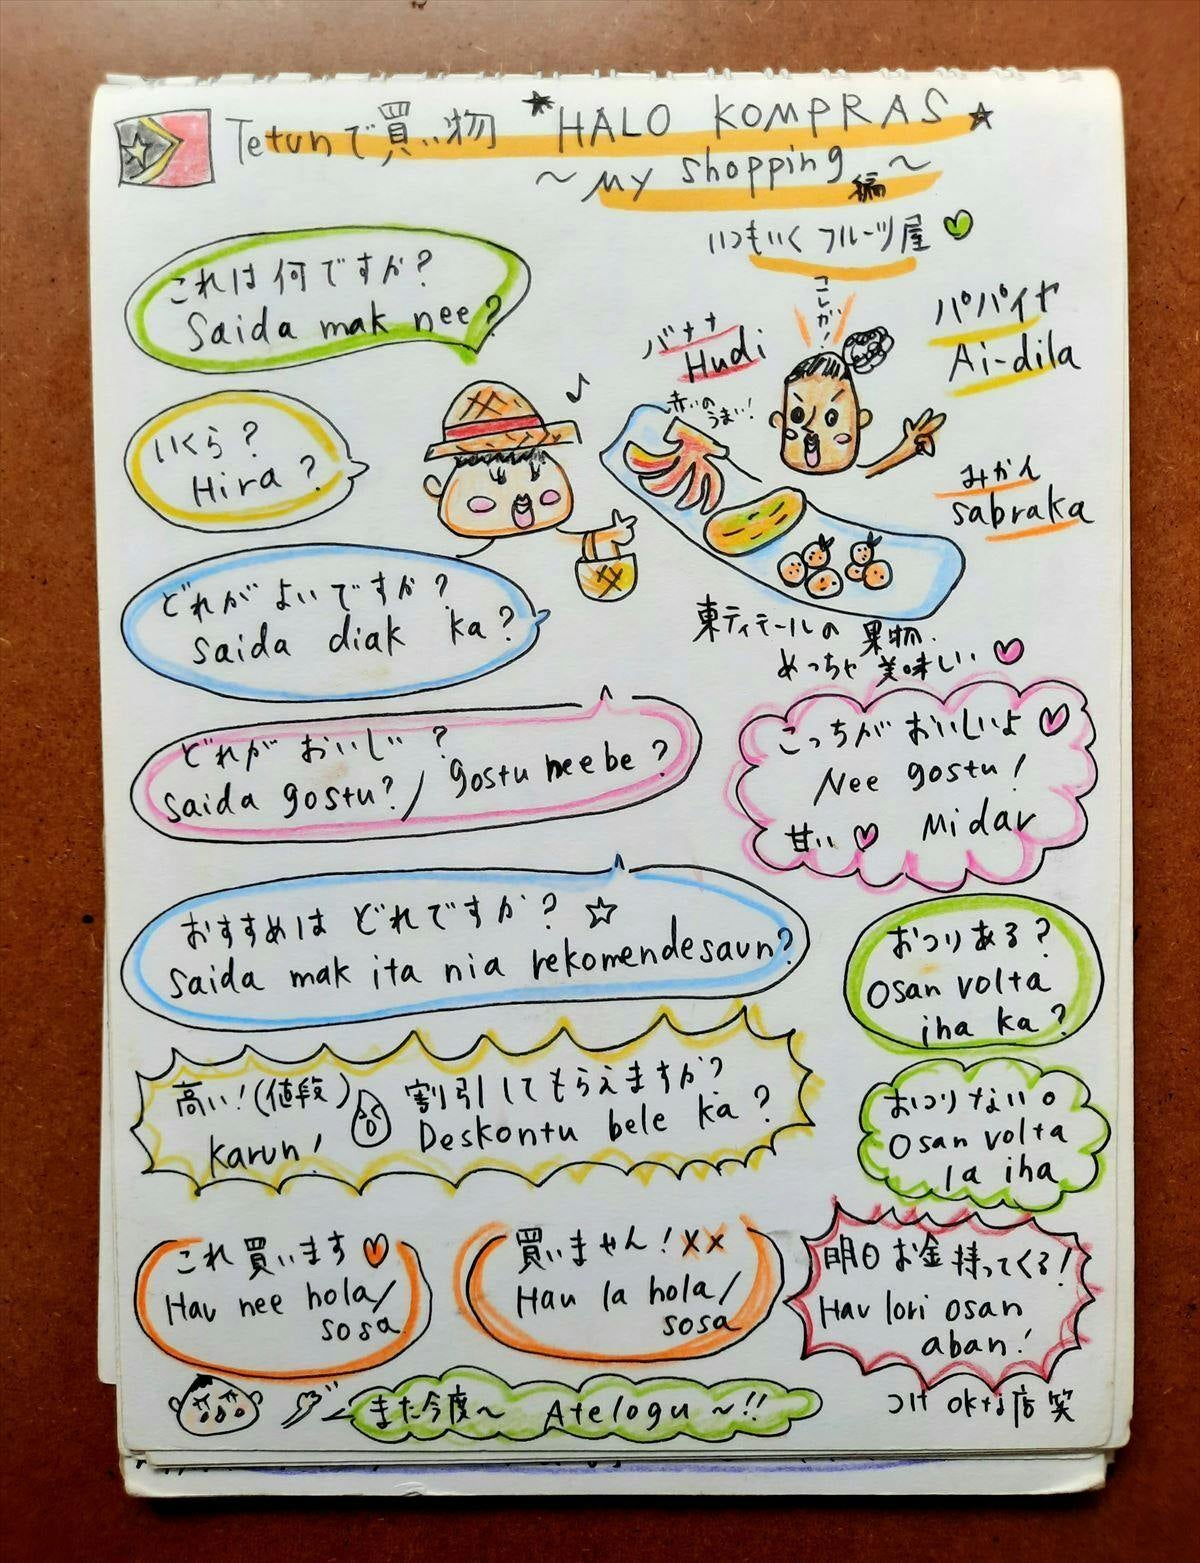 Tetunで買い物 ★HALO KOMPRAS★
~ My shopping編 ~
いつもいくフルーツ屋
これは何ですか?
Saida mak nee?
いくら?
Hira?
どれがよいですか?
Saida diak ka?
バナナ
Hudi
赤いの
うまい!
これが!
パパイヤ
Ai-dila
みかん
sabraka
東ティモールの果物
めっちゃ美味しい
どれがおいしい?
Saida gostu? / gostu neebe?
こっちがおいしいよ
Nee gostu!
甘い Midar
おすすめはどれですか?
Saida mak ita nia rekomendesaun?
おつりある?
Osan volta
iha ka?
高い!(値段)
Karun!
割引してもらえますか?
Deskontu bele ka?
おつりない。
Osan volta
la iha
これ買います
Hau nee hola/
sosa
買いません!××
Hau la hola/
sosa
明日お金持ってくる!
Hau lori osan
aban!
また今度~ Atelogu~!!
つけokな店 笑